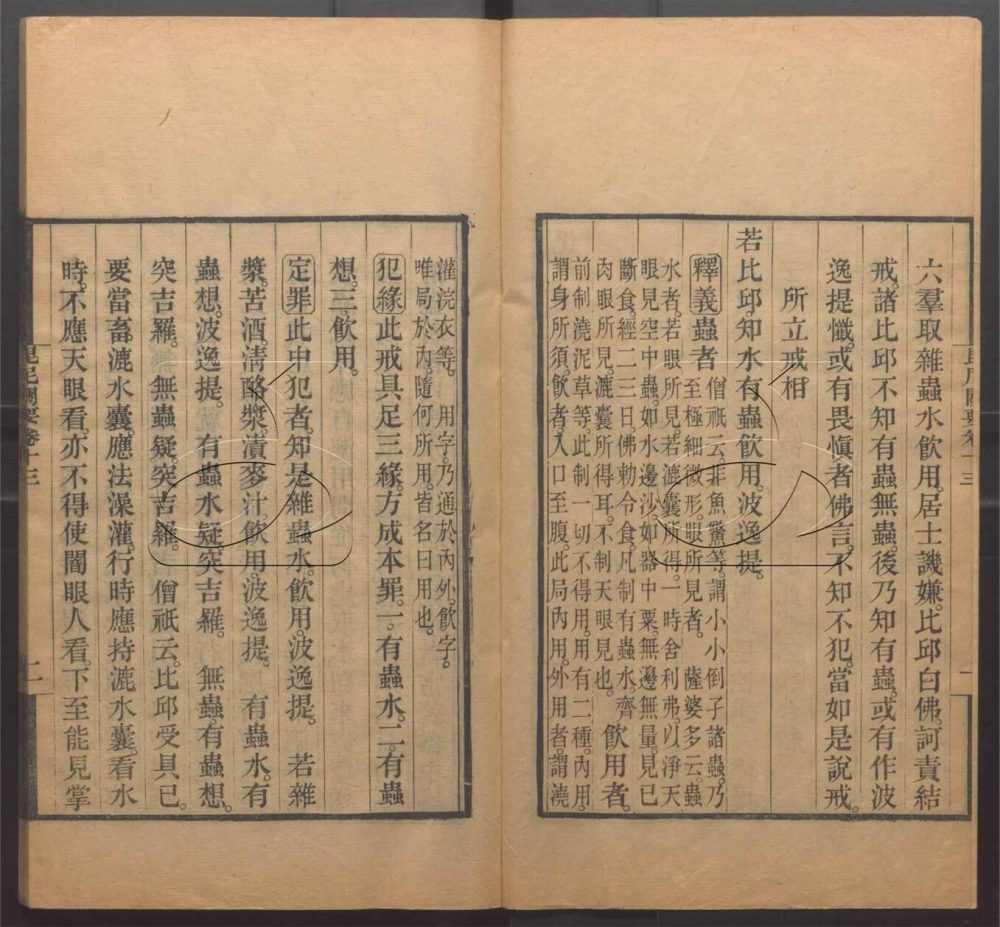 六羣取雜蟲水飲用。居士譏嫌。比邱白佛。訶責結
戒。諸比邱不知有蟲無蟲。後乃知有蟲。或有作波
逸提懺。或有畏愼者。佛言。不知不犯。當如是說戒。
所立戒相
若比邱。知水有蟲飲用。波逸提。
釋義蟲者
僧祇云。非魚鱉等。謂小小倒子諸蟲。乃
至極細微形。眼所見者。 薩婆多云。蟲
水者。若眼所見。若漉囊所得。一時舍利弗。以淨天
眼見空中蟲。如水邊沙。如器中粟。無邊無量。見已
斷食。經二三日。佛勅令食。凡制有蟲水。齊
肉眼所見。漉囊所得耳。不制天眼見也。 飲用者。
前制澆泥草等。此制一切不得用。用有二種。內用。
謂身所須。飲者。入口至腹。此局內用。外用者。謂澆
灌浣衣等。 用字。乃通於內外。飲字。
唯局於內。隨何所用。皆名曰用也。
犯緣此戒具足三緣。方成本罪。一。有蟲水。二。有蟲
想。三。飲用。
定罪此中犯者。知是雜蟲水。飲用。波逸提。 若雜
漿。苦酒。淸酪漿。漬麥汁。飲用。波逸提。 有蟲水。有
蟲想。波逸提。 有蟲水疑。突吉羅。 無蟲。有蟲想。
突吉羅。 無蟲疑。突吉羅。 僧祇云。比邱受具已。
要當畜漉水囊。應法澡灌。行時應持漉水囊。看水
時。不應天眼看。亦不得使闇眼人看。下至能見掌
毘尼關要卷十三
二